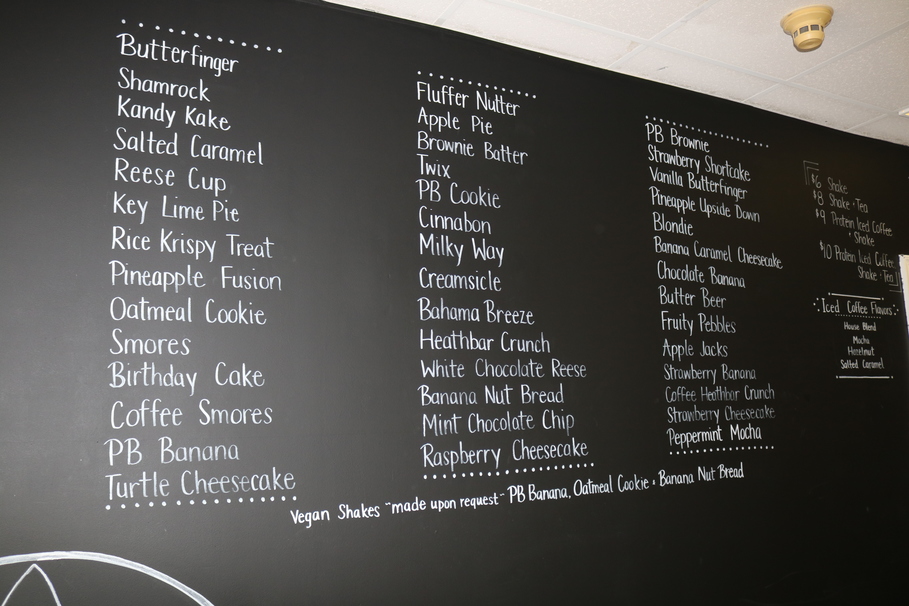 Butterfinger
Shamrock
Kandy Kake
Salted Caramel
Reese Cup
Key Lime Pie
Rice Krispy Treat
Pineapple Fusion
Oatmeal Cookie
Smores
Birthday Cake
Coffee Smores
PB Banana
Turtle Cheesecake
Fluffer Nutter
Apple Pie
Brownie Batter
Twix
PB Cookie
Cinnabon
Milky Way
Creamsicle
Bahama Breeze
Heathbar Crunch
White Chocolate Reese
Banana Nut Bread
Mint Chocolate Chip
Raspberry Cheesecake
PB Brownie
Strawberry Shortcake
Vanilla Butterfinger
Pineapple Upside Down
Blondie
Banana Caramel Cheesecake
Chocolate Banana
Butter Beer
Fruity Pebbles
Apple Jacks
Strawberry Banana
Coffee Heathbar Crunch
Strawberry Cheesecake
Peppermint Mocha
Vegan Shakes "made upon request" PB Banana, Oatmeal Cookie + Banana Nut Bread
$6 Shake
$8 Shake + Tea
$9 Protein Iced Coffee
+ Shake
$10 Protein Iced Coffee
Shake + Tea
Iced Coffee Flavors
House Blend
Mocha
Hazelnut
Salted Caramel